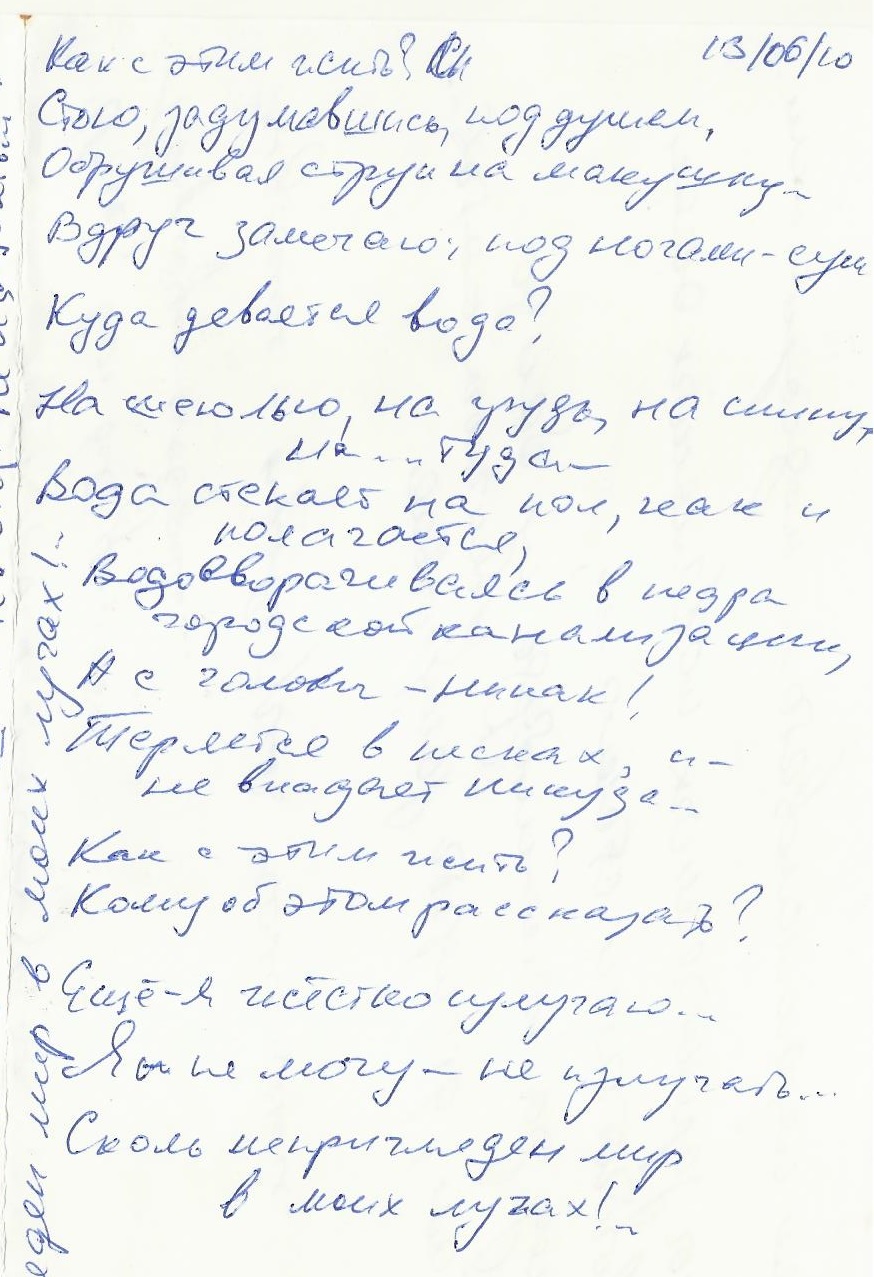 13/06/10
Как с этим жить? Сы
Стою, задумавшись, под душем,
Обрушивая струи на макушку..
Вдруг замечаю:, под ногами - суш
Куда девается вода?
На шею лью, на грудь, на спину,
на... туда..
Вода стекает на пол, как и
полагается,
Водовворачиваясь в недра
городской канализации,
А с головы - никак!
Теряется в песках, и -
не впадает никуда..
Как с этим жить?
Кому об этом рассказать?
Ещё - я жёстко излучаю...
Я не могу - не излучать...
Сколь неприглядден мир
в моих лучах!..
еден мир в моих лучах!..